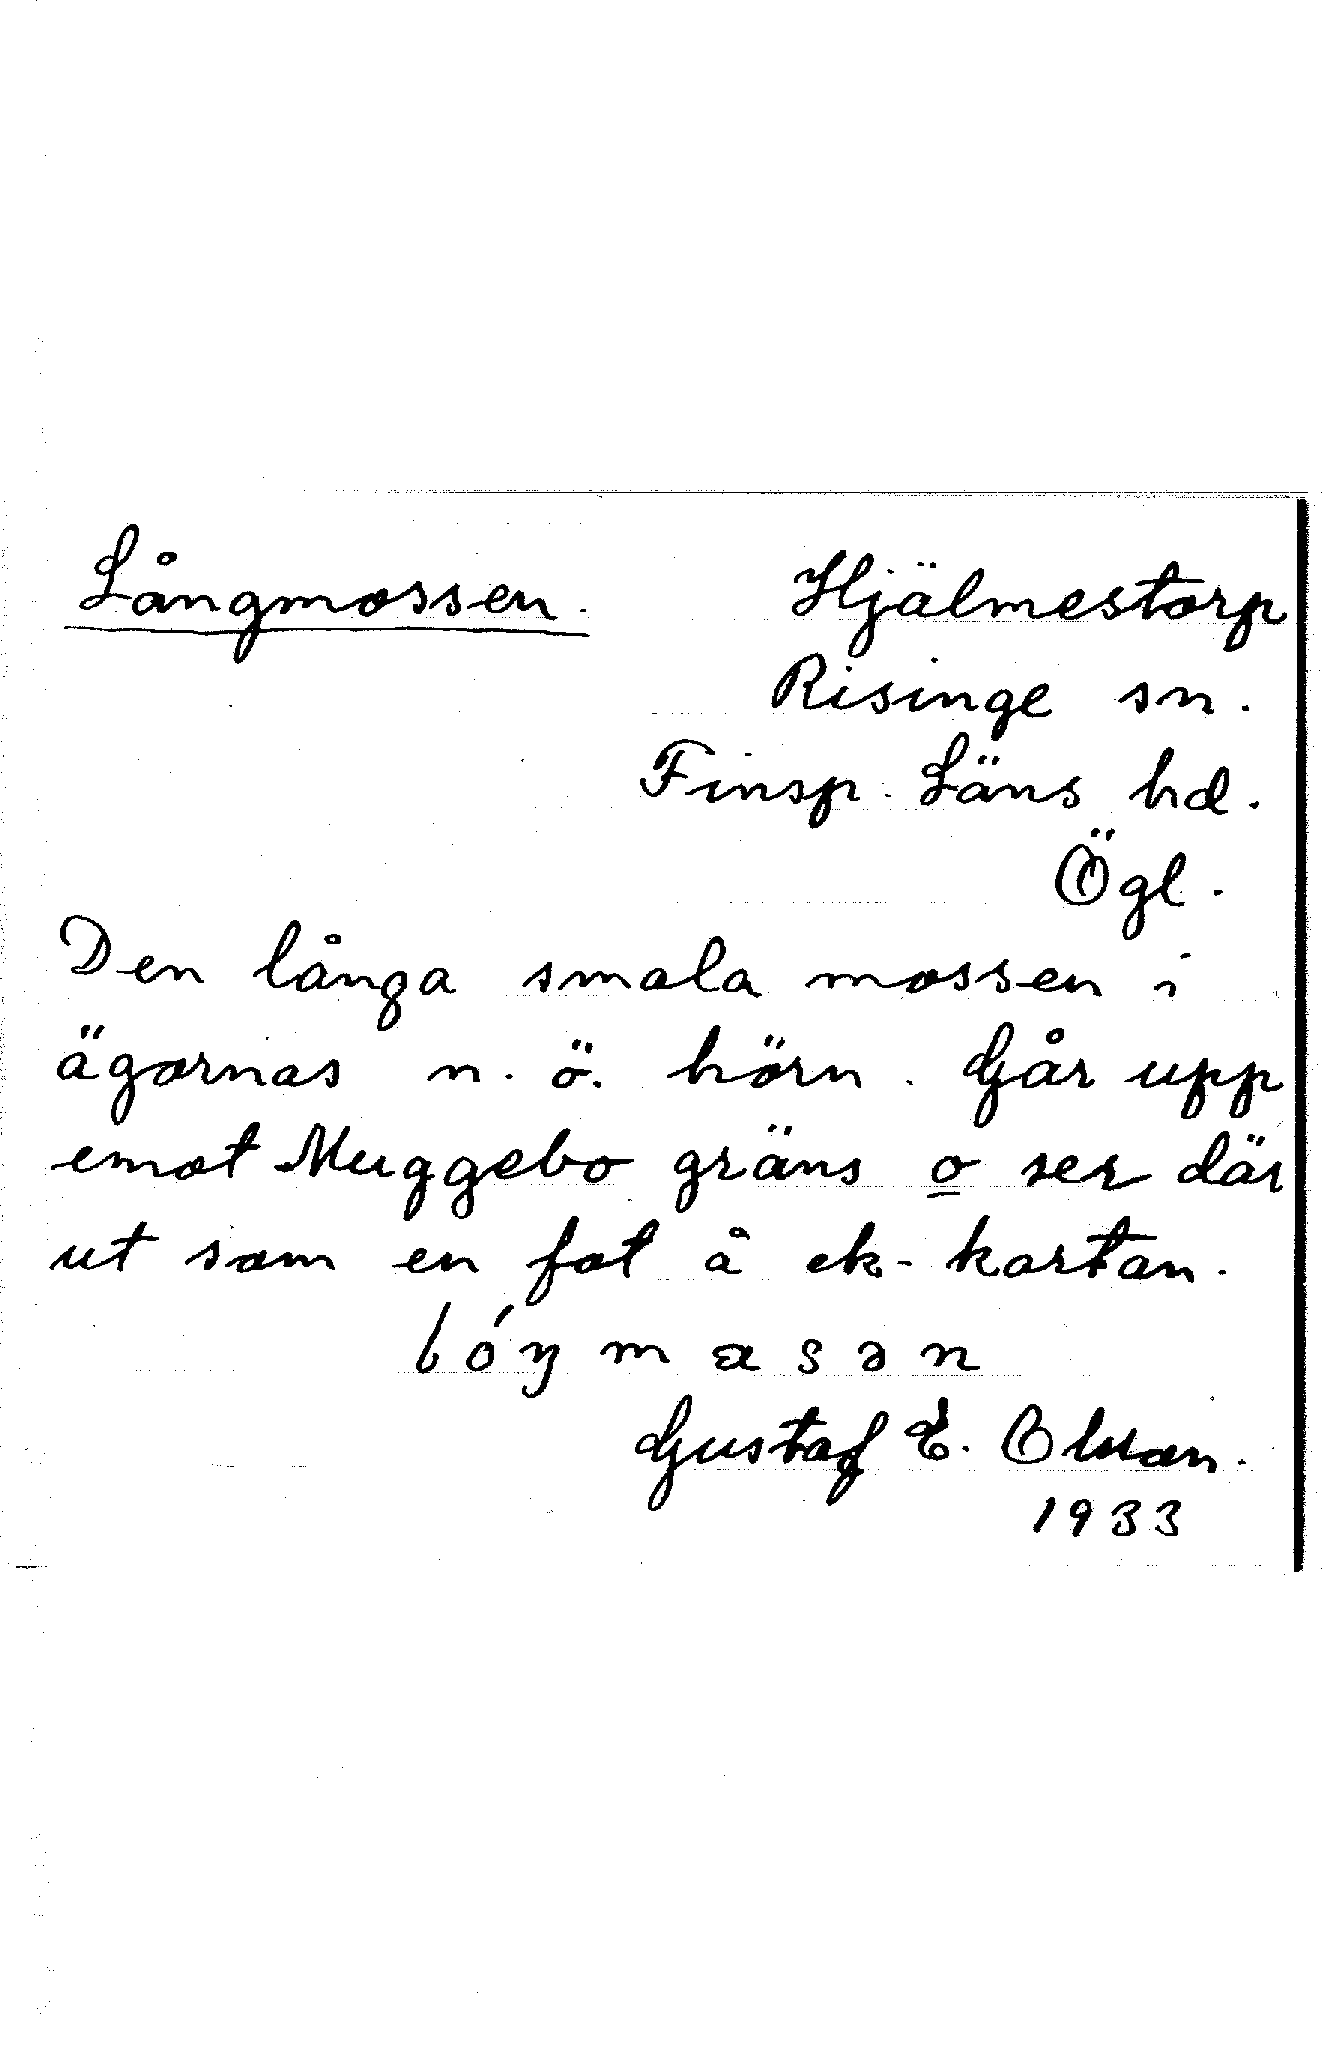 Långmossen.
Hjälmestorp
Risinge sn.
Finsp. Läns hd.
Ögl.
Den långa smala mossen i
ägornas n. ö. hörn. Går upp
emot Muggebo gräns o ser där
ut som en fot å ek-kartan.
lóŋmasən
Gustaf E. Olsson.
1933